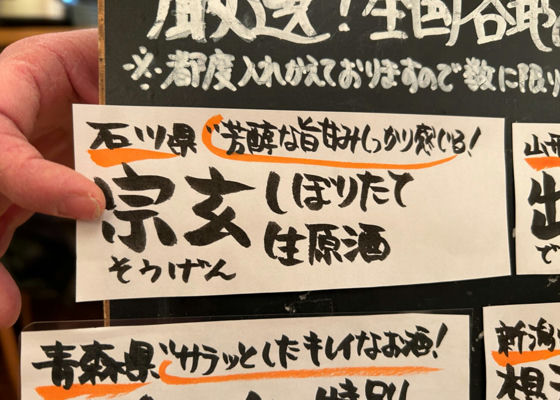 厳選！全国各地
※都度入れかえておりますので数に限り
石川県 "芳醇な旨甘みしっかり感じる！
宗玄 しぼりたて
生原酒
そうげん
青森県 "サラッとしたキレイなお酒！
特別
新潟